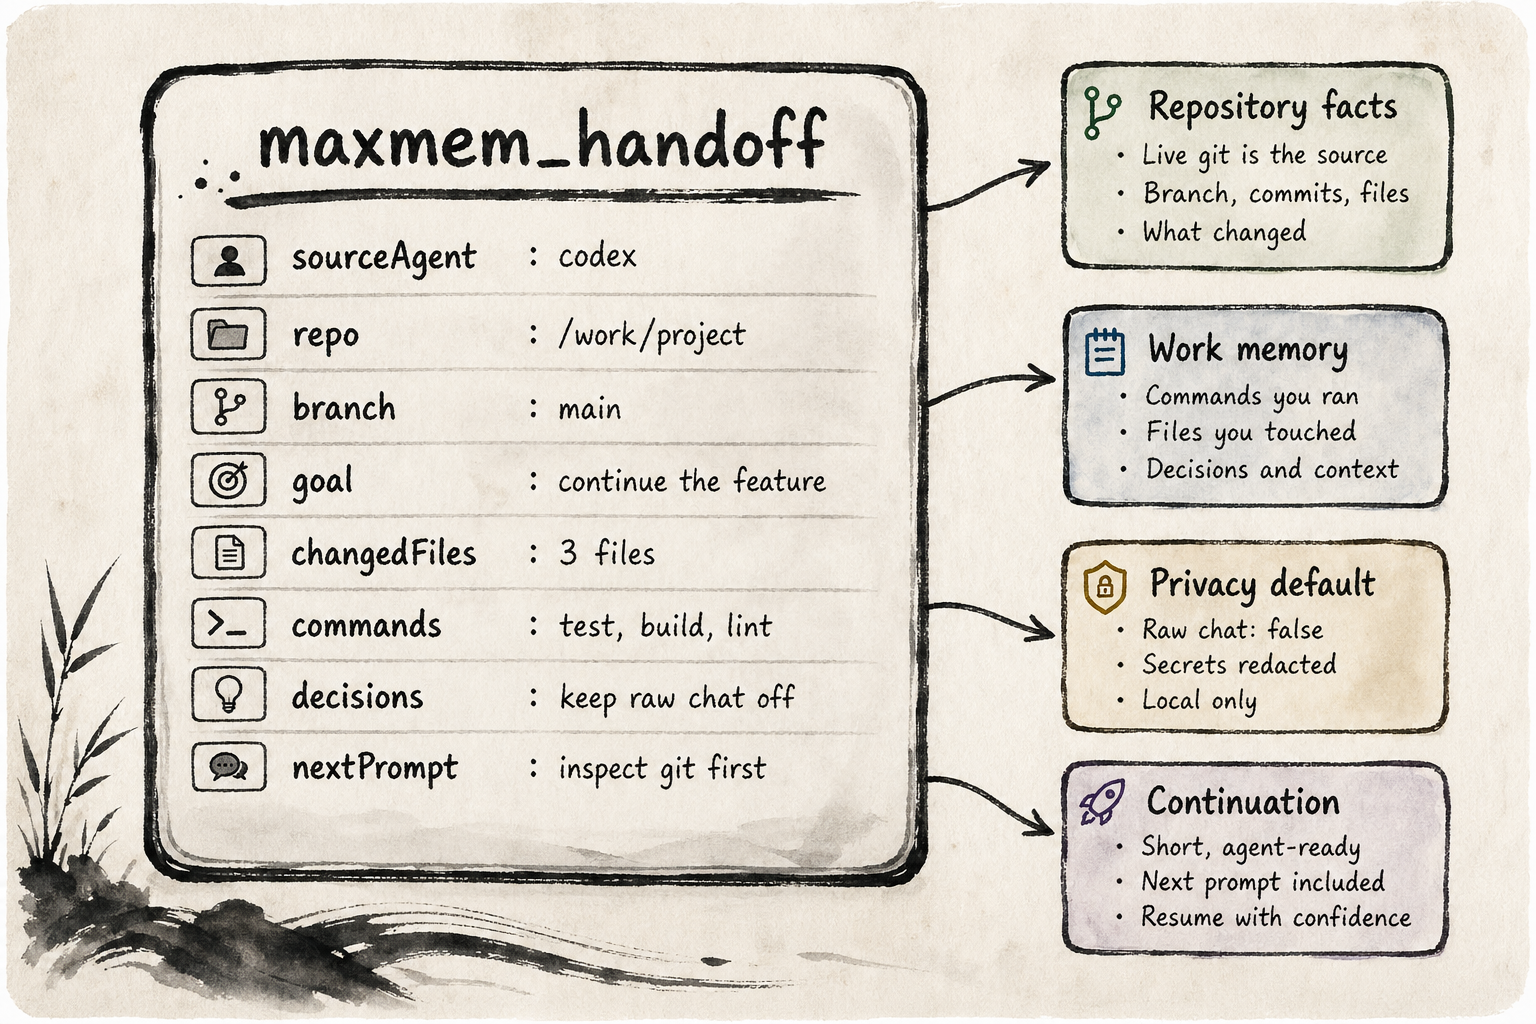 maxmem_handoff
sourceAgent : codex
repo : /work/project
branch : main
goal : continue the feature
changedFiles : 3 files
commands : test, build, lint
decisions : keep raw chat off
nextPrompt : inspect git first
Repository facts
• Live git is the source
• Branch, commits, files
• What changed
Work memory
• Commands you ran
• Files you touched
• Decisions and context
Privacy default
• Raw chat: false
• Secrets redacted
• Local only
Continuation
• Short, agent-ready
• Next prompt included
• Resume with confidence